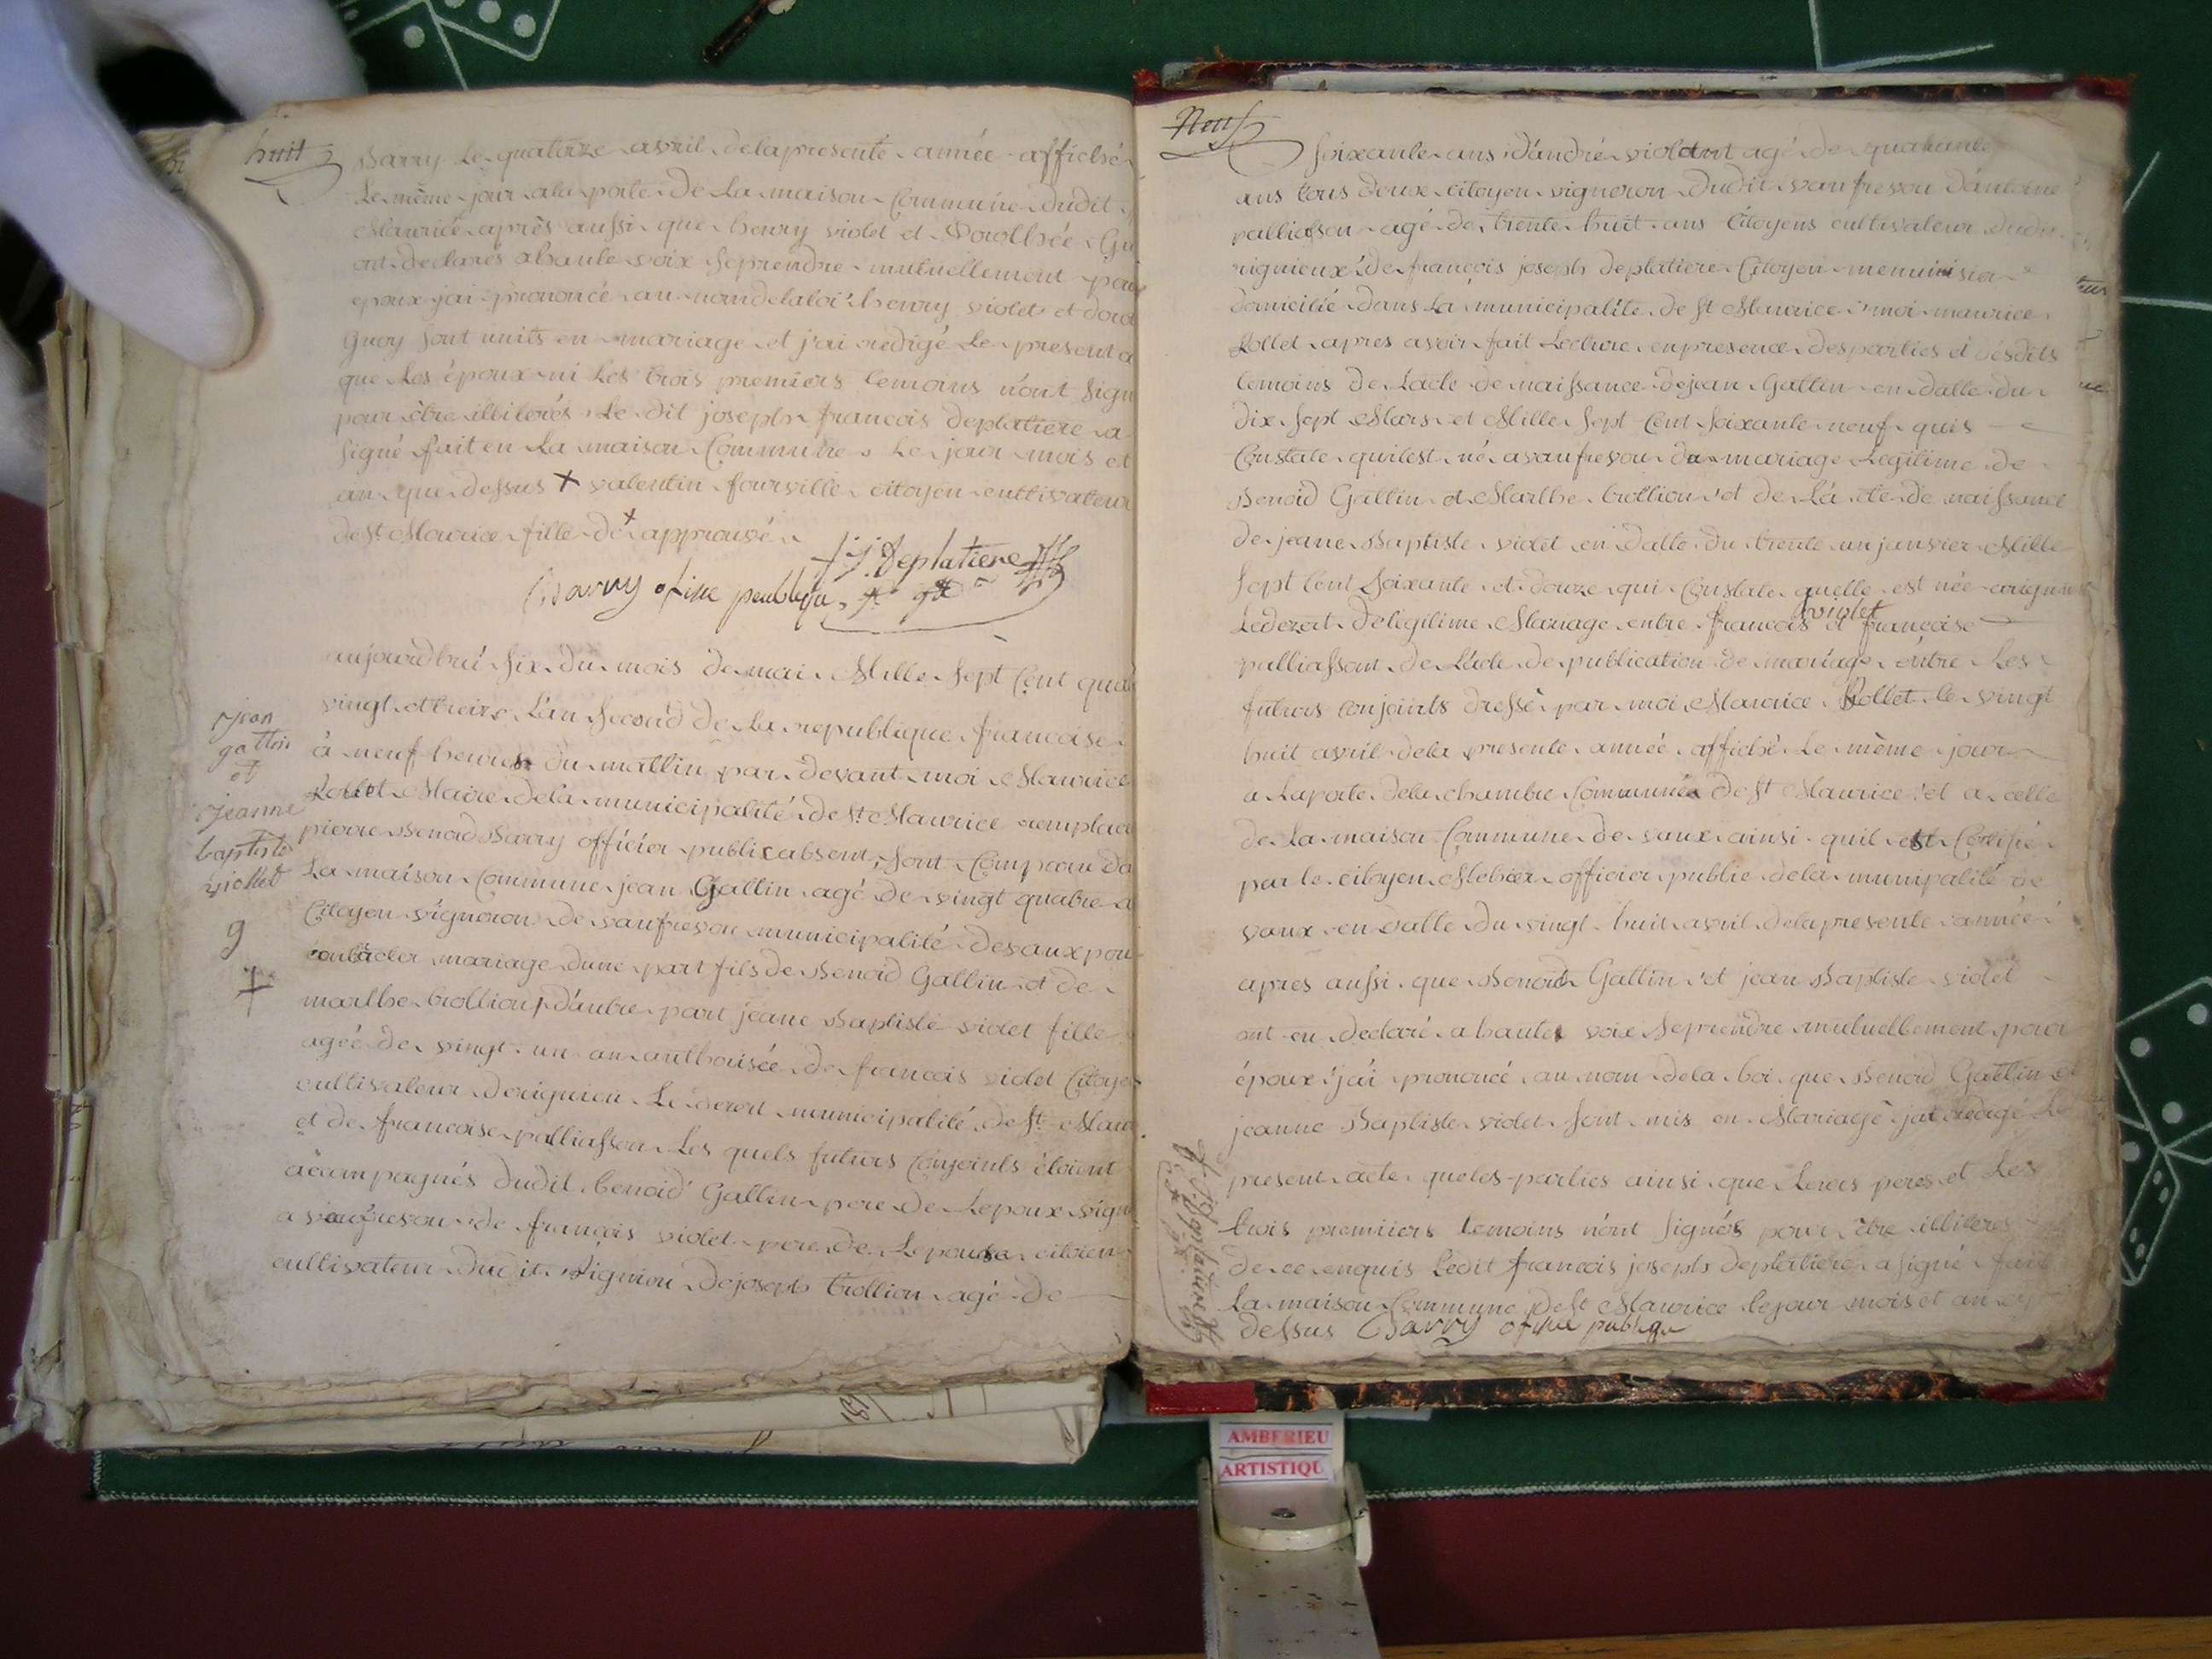 huit
Barry Le quatorze avril delapresente année affiché
Le même jour ala porte De La maison Commune dudit
Maurice après aussi que henry violet et Dorothée Gu
ont declarés ahaute voix seprendre mutuellement pour
epoux jai prononcé au nom delaloi henry violet et doro
guoy sont units en mariage et j'ai redigé Le present a
que Les époux ni Les trois premiers temoins n'ont sign
pour être illiterés Le dit joseph francois deplatiere a
signé fait en La maison Commune Le jour mois et
an que dessus + valentin fourville citoyen cultivateur
de st Maurice fille de + approuvé
f j Deplatiere
Barry ofise peublique
jean
gattin
et
jeanne
baptiste
violet
9
aujourdhui six du mois de mai Mille sept Cent quat
vingt et treize L'an second de La republique francaise
à neuf heures du mattin par devant moi Maurice
Rollet Maire dela municipalité de st Maurice remplac
pierre Benoid Barry officier public absent sont Comparu da
La maison Commune jean Gattin agé de vingt quatre a
Citoyen vigneron de vaufrevou municipalité devaux pour
contracter mariage dune part fils de Benoid Gattin et de
marthe trollion d'autre part jeane Baptiste violet fille
agée de vingt un an authorisée de francois violet Citoyen
cultivateur derignieu Le desert municipalité de st Mau
et de francoise palliasson Les quels futurs Conjoints étoient
acompagnés dudit benoid Gattin pere de Lepoux vign
a vaufrevou de françois violet pere de Lepouse citoien
cultivateur dudit Rignieu de joseph trollion agé de
Neuf
soixante ans d'andré violant agé de quarante
ans tous deux citoyen vigneron dudit vaufrevou d'antoine
palliasson agé de trente huit ans Citoyens cultivateur dudit
rignieux de françois joseph deplatiere Citoyen menuisier
domicilié dans La municipalité de st Maurice moi maurice
Rollet apres avoir fait Lecture enpresence desparties et desdits
temoins de Lacte de naissance dejean Gattin en datte du
dix sept Mars et Mille sept Cent soixante neuf quis
Constate quilest né avaufrevou du mariage Legitime de
Benoid Gattin et Marthe trollion et de La cte de naissance
de jeane Baptiste violet en datte du trente un janvier Mille
sept Cent soixante et douze qui Constate quelle est née arignieu
Ledezert de legitime Mariage entre francois violet et francoise
palliassont de L'acte de publication de mariage entre Les
futurs Conjoints dressé par moi Maurice Rollet le vingt
huit avril dela presente année affiché Le même jour
a Laporte dela chambre Commune de st Maurice et a celle
de La maison Commune de vaux ainsi quil est Certifié
par le citoyen officier public dela municipalité de
vaux en datte du vingt huit avril delapresente année
apres aussi que Benoid Gattin et jean Baptiste violet
ont en declaré a haute voix seprendre mutuellement pour
époux j'ai prononcé au nom dela loi que Benoid Gattin et
jeanne Baptiste violet sont unis en Mariage jai redigé Le
present acte queles parties ainsi que Leurs peres et Les
trois premiers temoins n'ont signés pour être illiteres
de ce enquis Ledit francois joseph deplatiere a signé fait
La maison Commune de st Maurice le jour mois et an
dessus Barry ofise publique
f j Deplatiere
AMBERIEU
ARTISTIQU